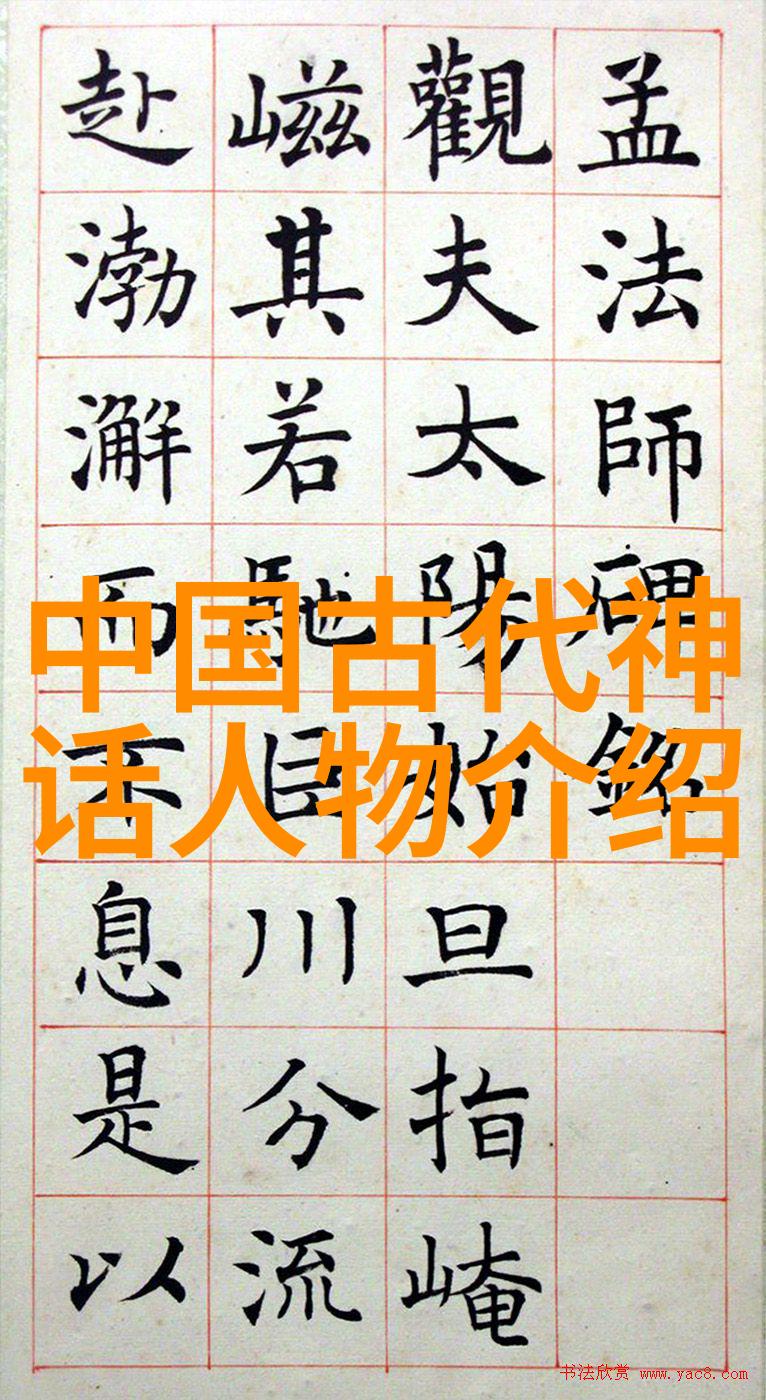 孟法師碑銘
觀夫太陽始旦指崦
嵫其若馳巨川分流
赴渤澥而不息是以
中国古代神
话人物介绍
书法欣赏 www.yac8.com